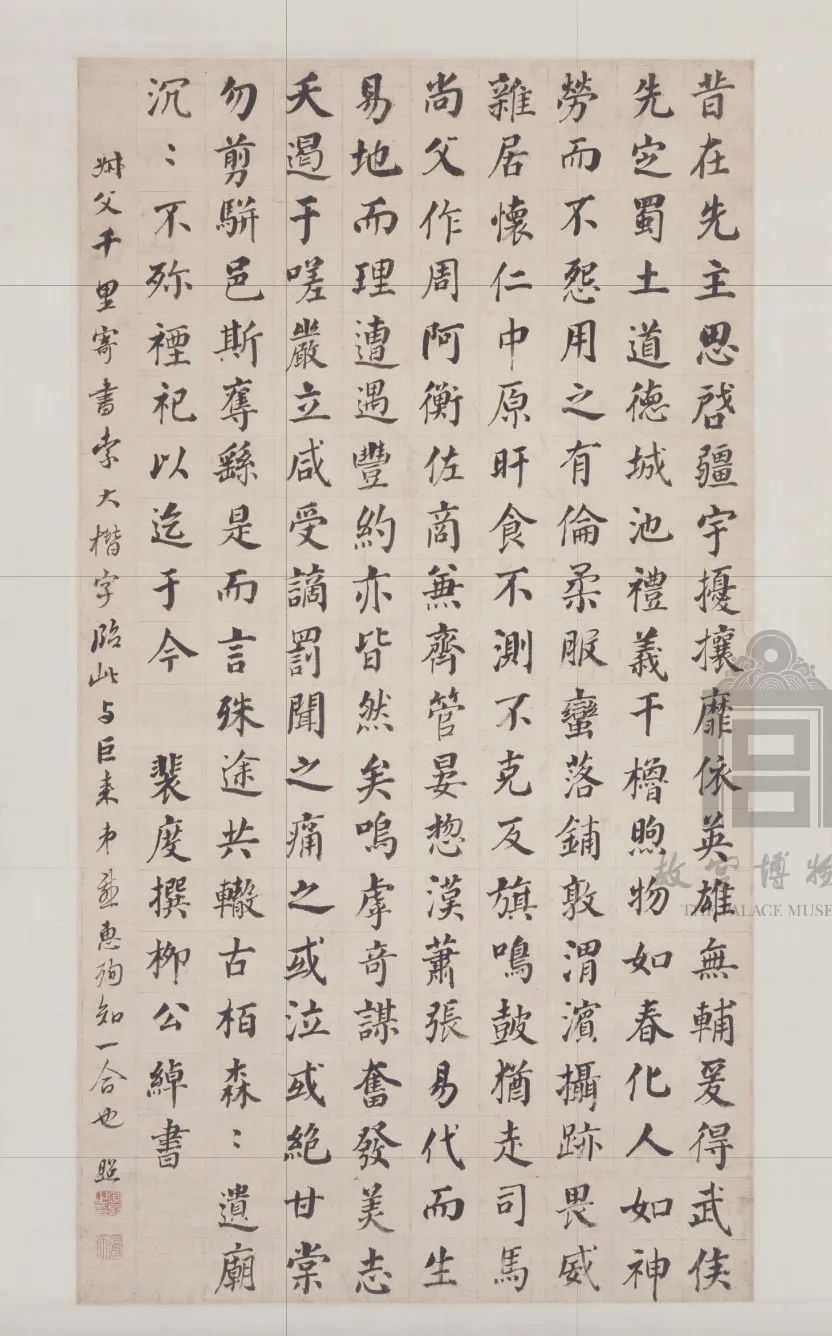 昔在先主思啓疆宇擾攘靡依英雄無輔爰得武侯
先定蜀土道德城池禮義干櫓煦物如春化人如神
勞而不怨用之有倫柔服蠻落鋪敦渭濱攝跡畏威
雜居懷仁中原旰食不測不克反旗鳴鼓猶走司馬
尚父作周阿衡佐商兼齊管晏惣漢蕭張易代而生
易地而理遭遇豐約亦皆然矣嗚虖奇謀奮發美志
夭遏于嗟嚴立咸受謫罰聞之痛之或泣或絶甘棠
勿剪駢邑斯奪繇是而言殊途共轍古栢森〻遺廟
沉〻不殄禋祀以迄于今 裴度撰柳公綽書
叔父千里寄書索大楷字臨此与巨来 知一合也 照
故宮博物
THE PALACE MUSE